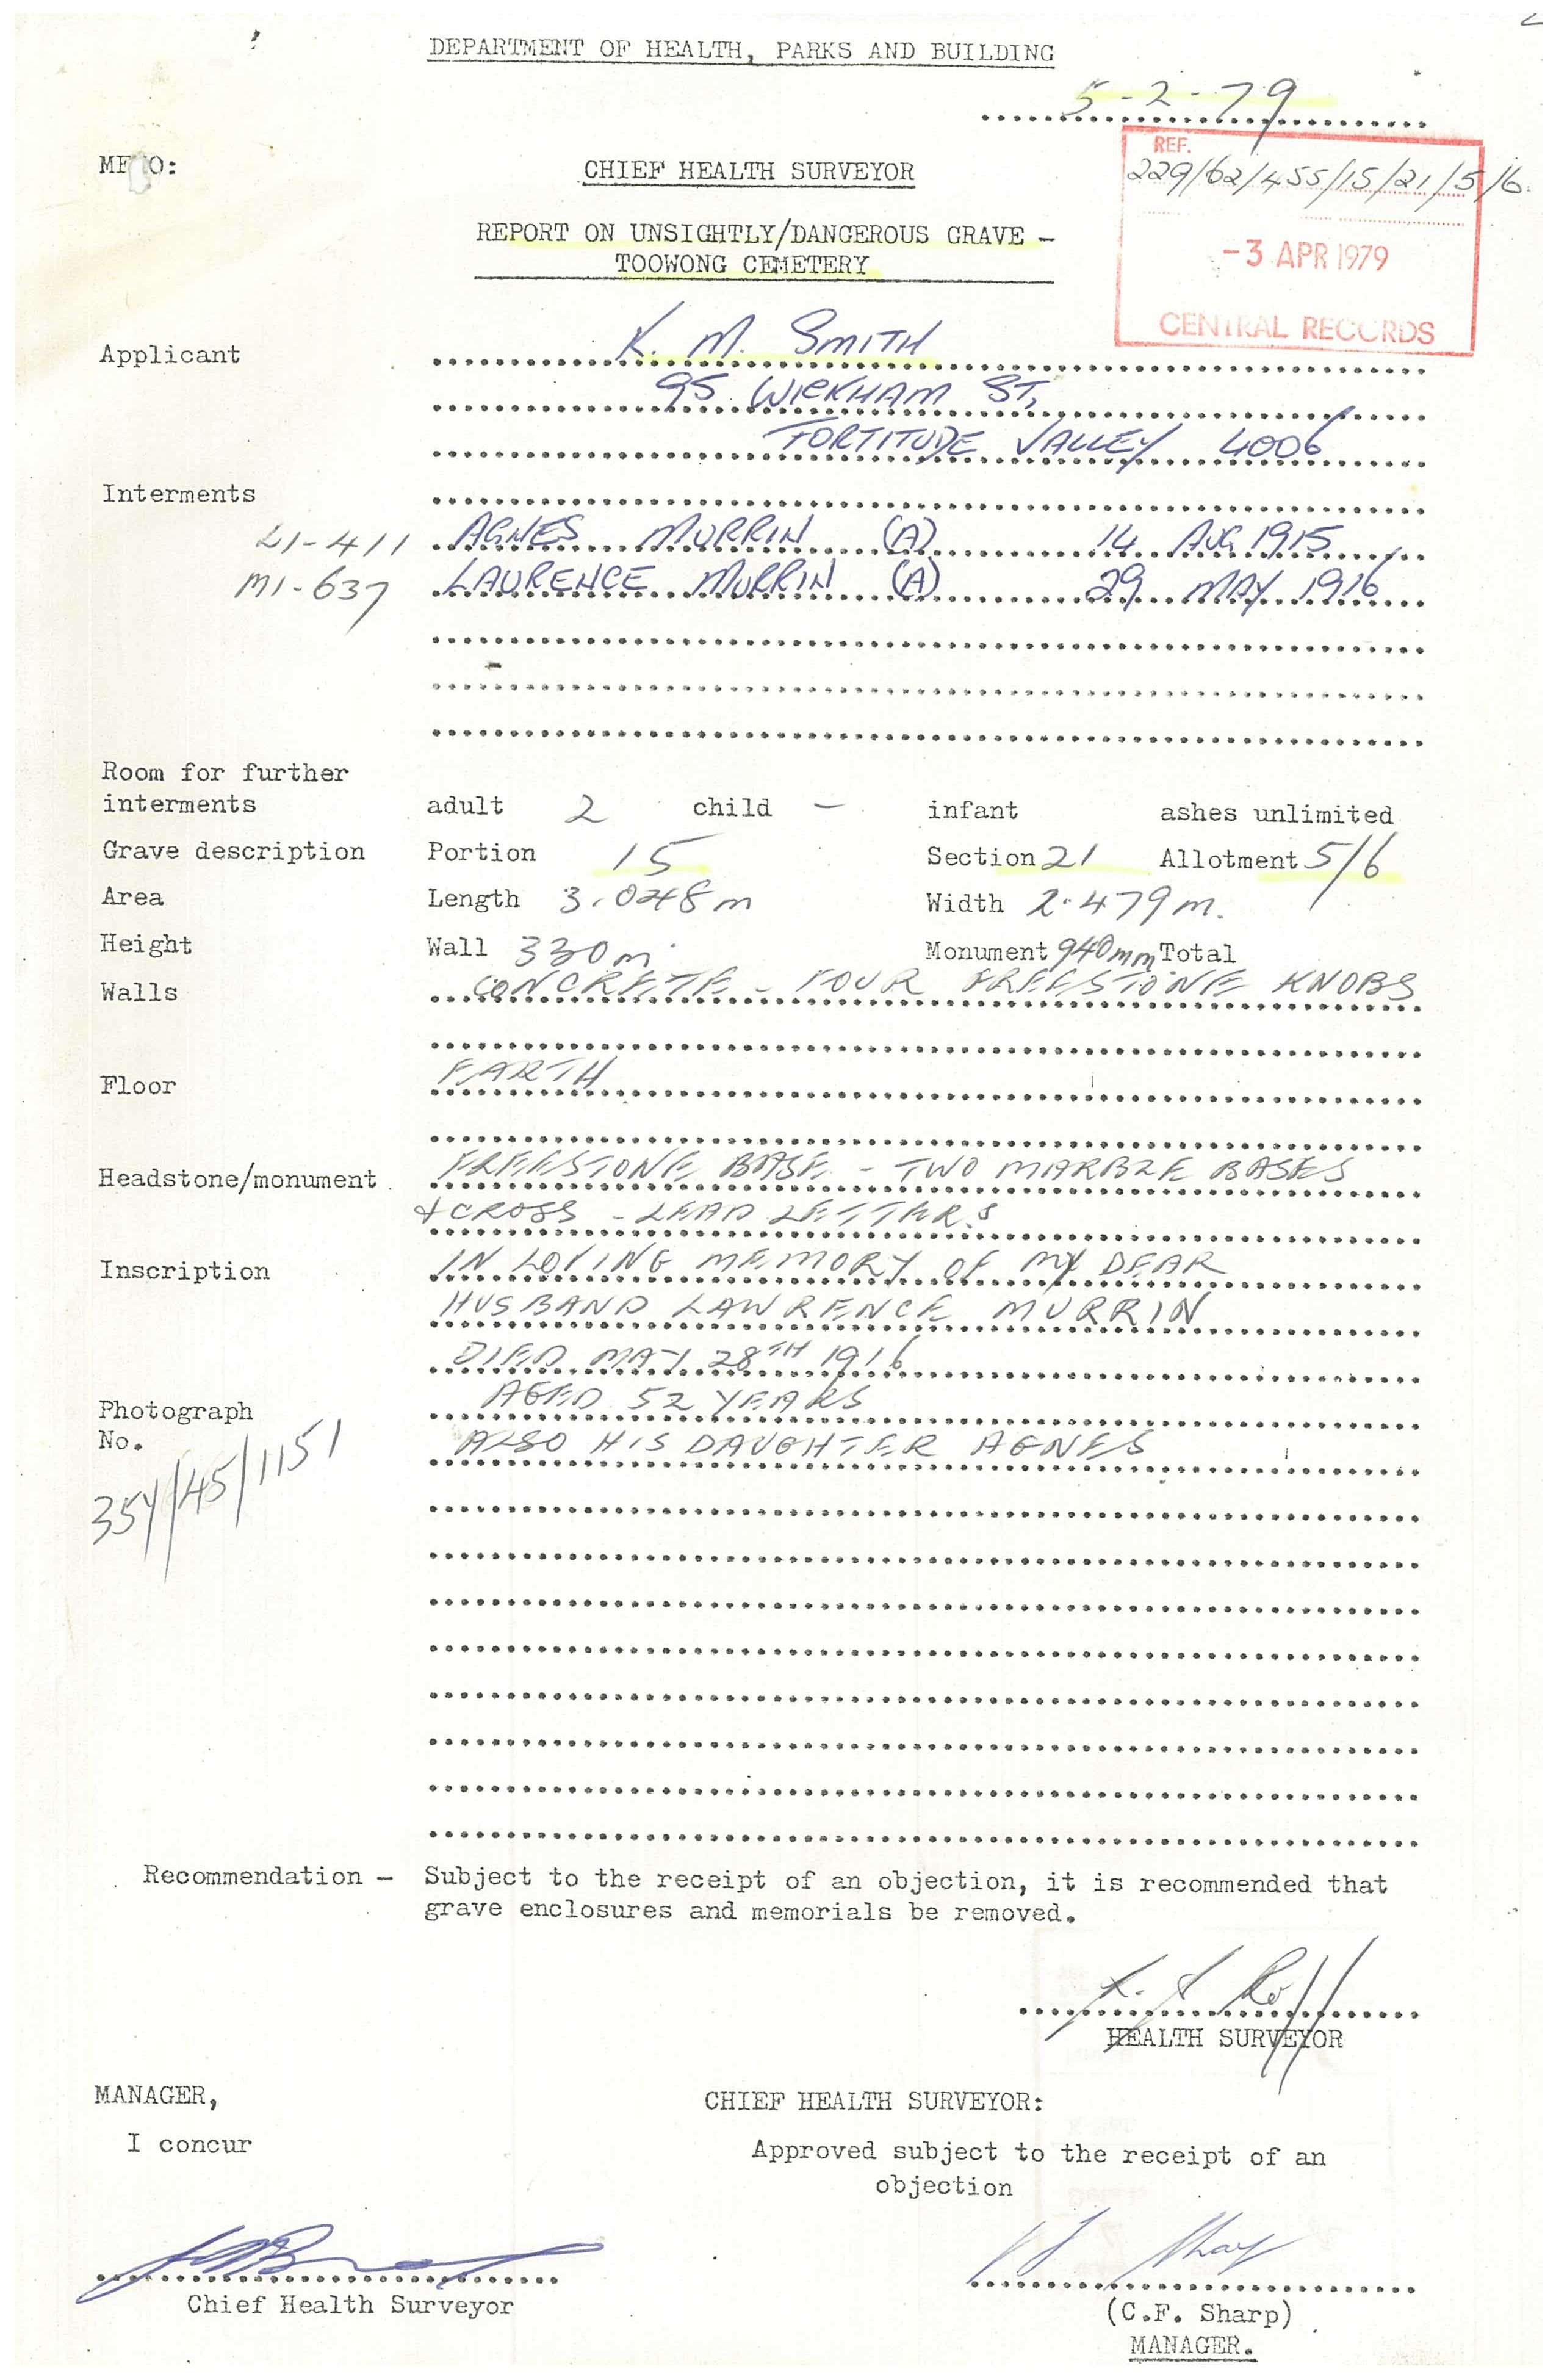 DEPARTMENT OF HEALTH, PARKS AND BUILDING
5-2-79
REF.
229/62/455/15/21/5/6
-3 APR 1979
CENTRAL RECORDS
MEMO:
CHIEF HEALTH SURVEYOR
REPORT ON UNSIGHTLY/DANGEROUS GRAVE -
TOOWONG CEMETERY
Applicant K. M. SMITH
95 WICKHAM ST,
FORTITUDE VALLEY 4006
Interments
L1-411 AGNES MURRIN (A) 14 AUG 1915
M1-637 LAURENCE MURRIN (A) 29 MAY 1916
Room for further
interments adult 2 child - infant ashes unlimited
Grave description Portion 15 Section 21 Allotment 5/6
Area Length 3.048m Width 2.479m.
Height Wall 330m Monument 940mm Total
Walls CONCRETE - FOUR FREESTONE KNOBS
Floor EARTH
Headstone/monument FREESTONE BASE - TWO MARBLE BASES
+ CROSS - LEAD LETTERS
Inscription IN LOVING MEMORY OF MY DEAR
HUSBAND LAWRENCE MURRIN
DIED MAY 28TH 1916
AGED 52 YEARS
Photograph
No.
ALSO HIS DAUGHTER AGNES
354/45/1151
Recommendation - Subject to the receipt of an objection, it is recommended that
grave enclosures and memorials be removed.
HEALTH SURVEYOR
MANAGER,
I concur
Chief Health Surveyor
CHIEF HEALTH SURVEYOR:
Approved subject to the receipt of an
objection
(C.F. Sharp)
MANAGER.